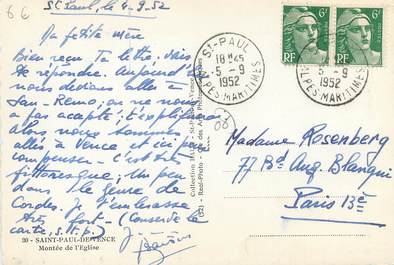 6 €
St Paul, le 4-9-52
Ma petite mère
Bien reçu ta lettre, vais
te répondre. Aujourd'hui
nous devions aller à
San-Remo, on ne nous
a pas accepté; t'expliquerai
Alors nous sommes
allés à Vence et ici pour
compenser - C'est très
pittoresque; un peu
dans le genre de
Cordes. Je t'embrasse
très fort - (Conserve la
carte, S.t.p.)
30 - SAINT-PAUL-DE-VENCE
Montée de l'Eglise
Collection
(52) - Real-Photo
ST-PAUL
18H45
5-9
1952
ALPES-MARITIMES
6F
RF
6F
RF
ST-PAUL
5-9
1952
ALPES-MARITIMES
Madame Rosenberg
77 Bd Aug. Blanqui
Paris 13è